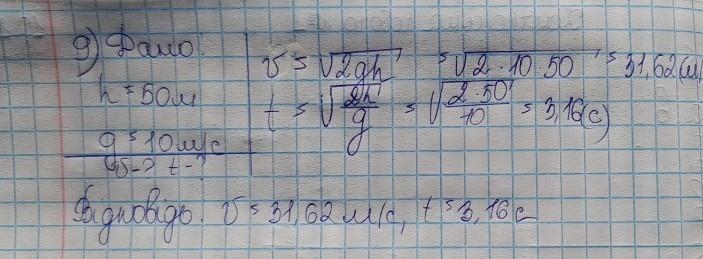 9) Дано:
h = 50м
g = 10м/с
v-? t-?
v = √2gh = √2·10·50 = 31,62(м/
t = √2h/g = √2·50/10 = 3,16(с)
Відповідь: v = 31,62 м/с, t = 3,16с